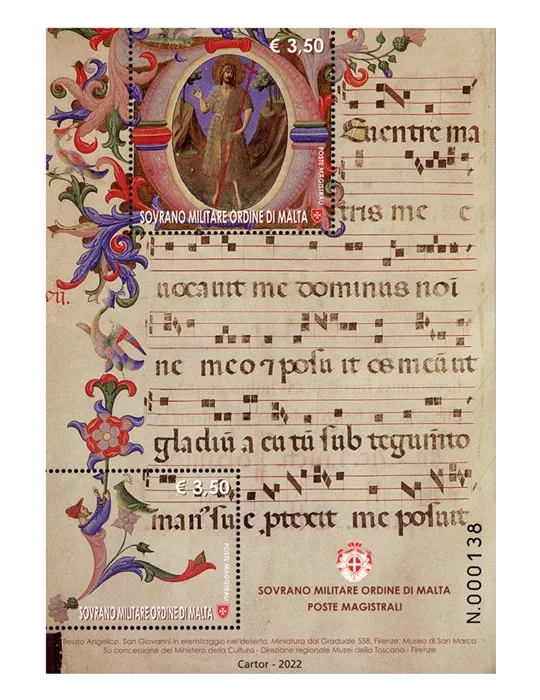 € 3,50
POSTE MAGISTRALI
SOVRANO MILITARE ORDINE DI MALTA
uentre ma
tris me e
vocavit me dominus noi
ne meo 7 posu it os meū ut
gladiū a cu tū sub tegum̄to
man' su e, ptexit me posuit
€ 3,50
POSTE MAGISTRALI
SOVRANO MILITARE ORDINE DI MALTA
SOVRANO MILITARE ORDINE DI MALTA
POSTE MAGISTRALI
N.000138
Beato Angelico, San Giovanni in eremitaggio nel deserto. Miniatura dal Graduale 558. Firenze. Museo di San Marco
Su concessione del Ministero della Cultura - Direzione regionale Musei della Toscana - Firenze
Cartor - 2022